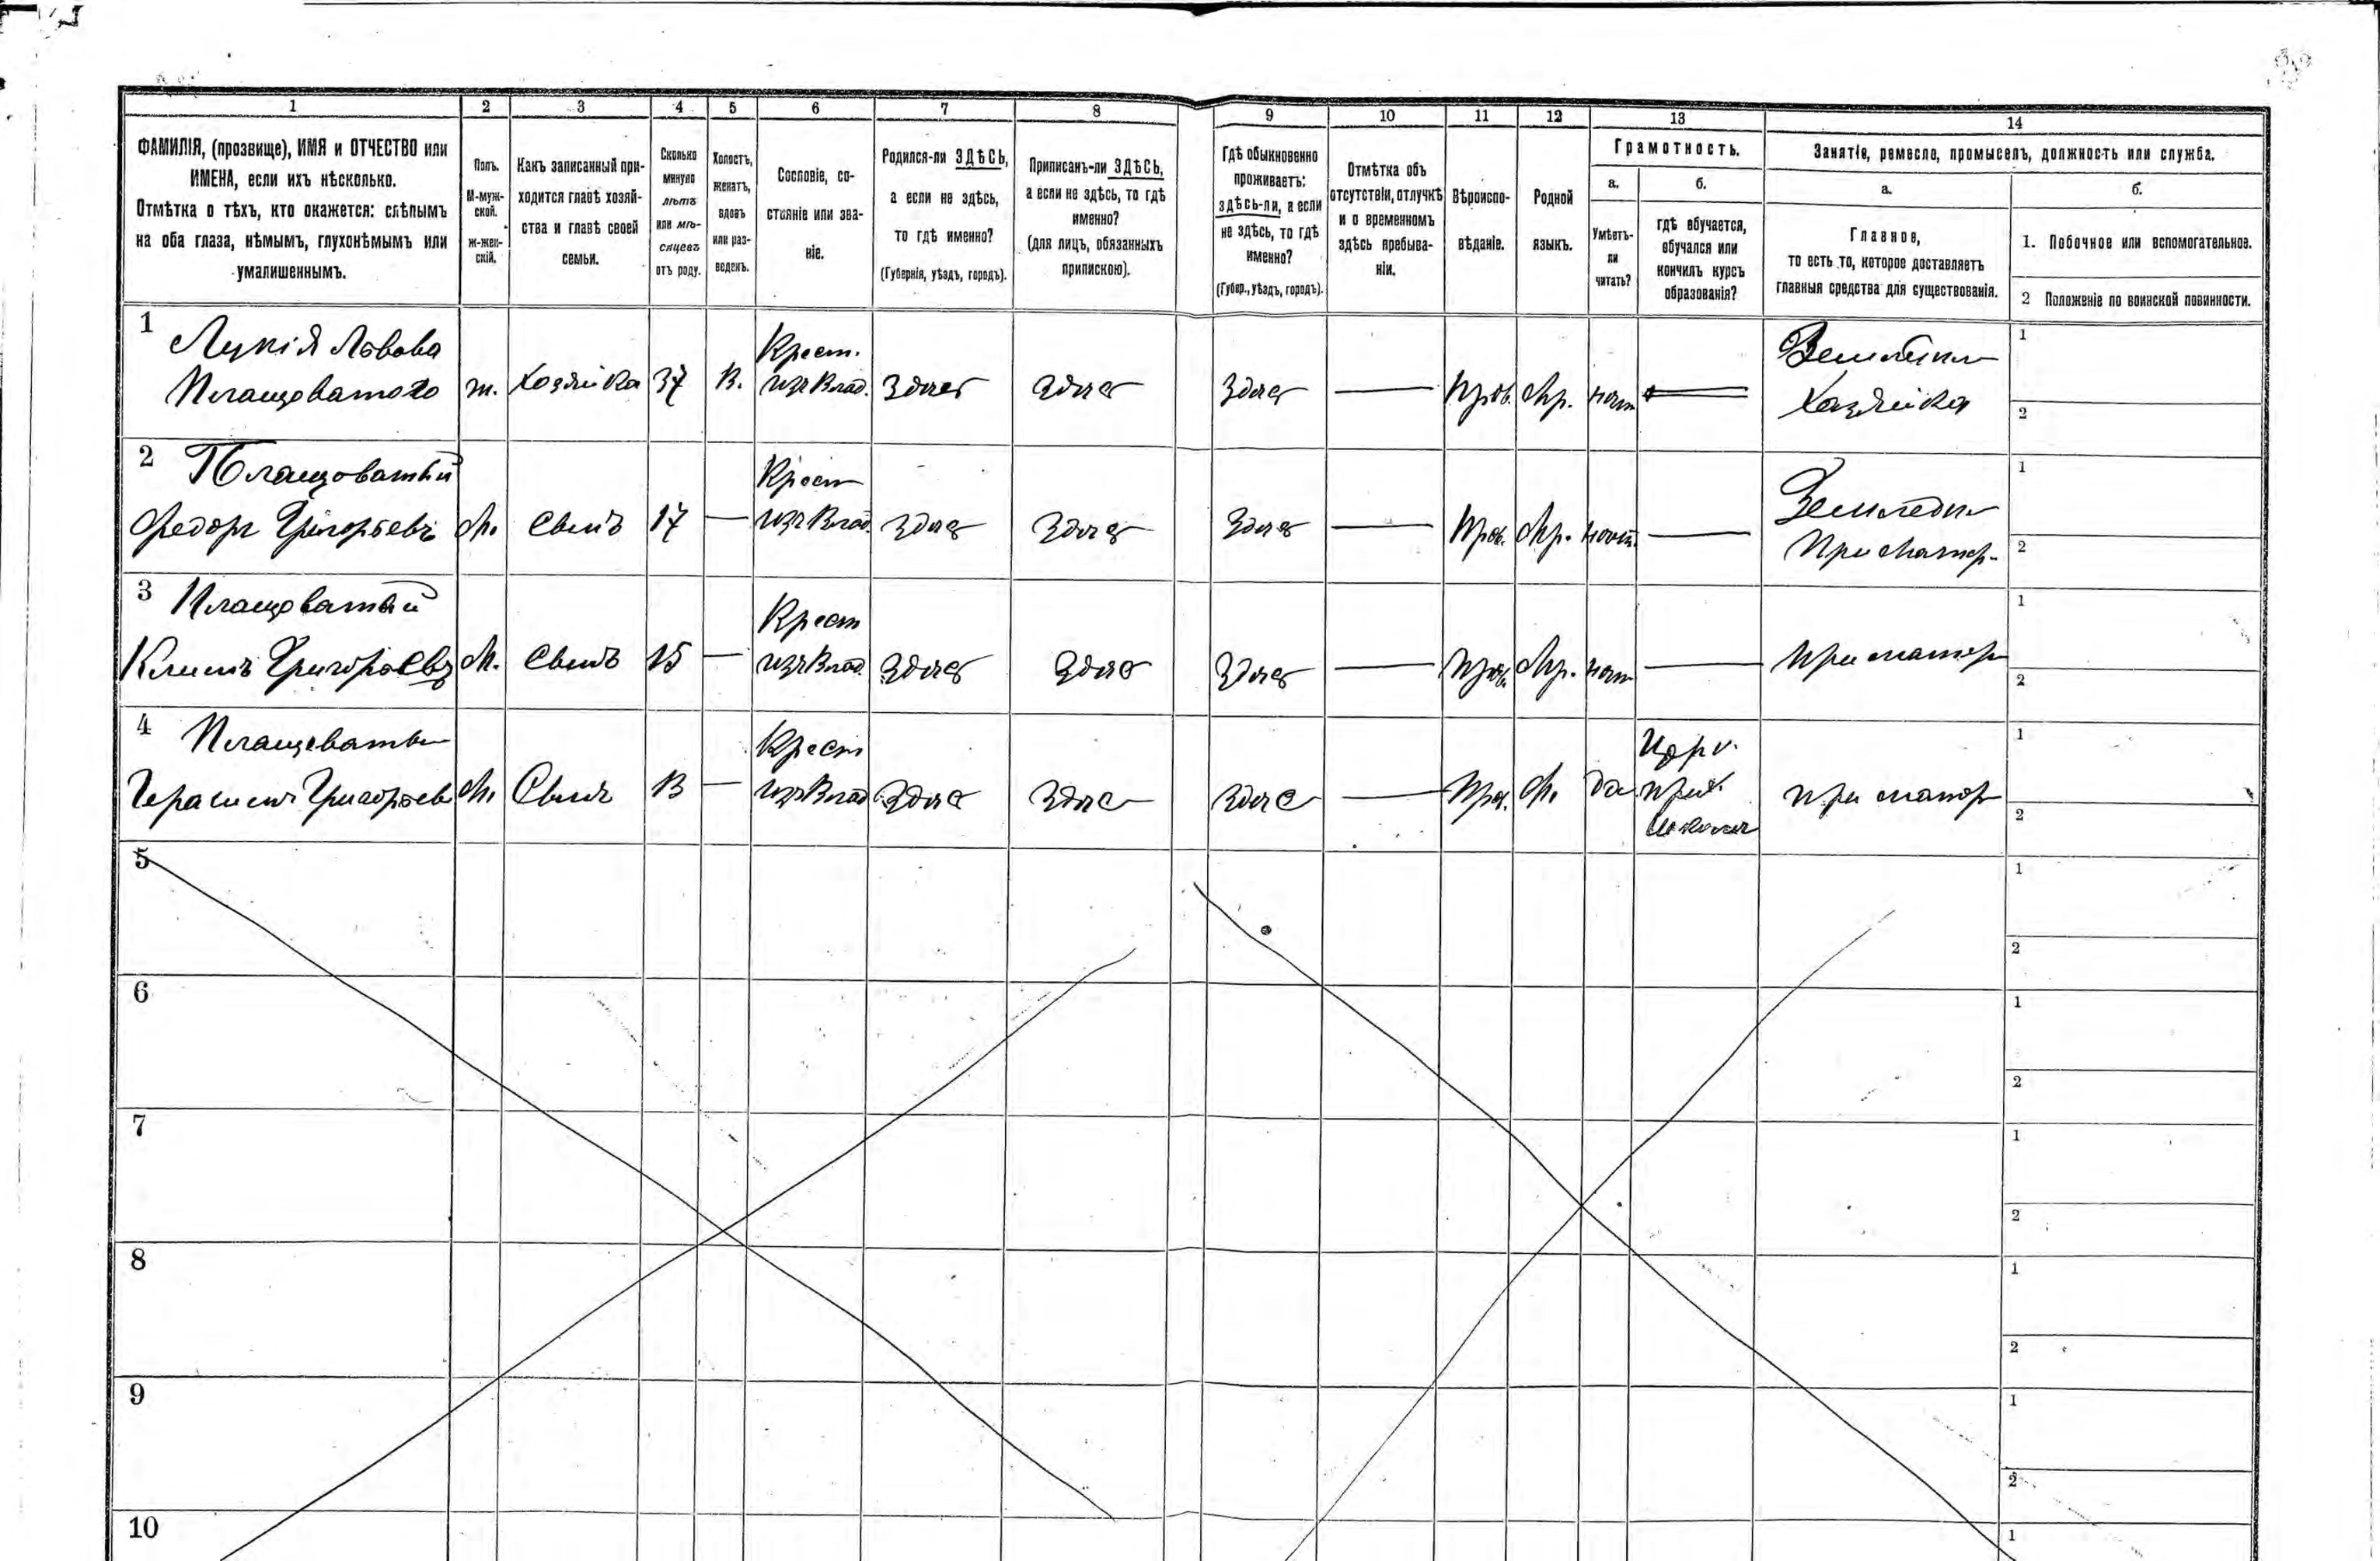 1 2 3 4 5 6 7 8 9 10 11 12 13 14
ФАМИЛІЯ, (прозвище), ИМЯ и ОТЧЕСТВО или
ИМЕНА, если ихъ нѣсколько.
Отмѣтка о тѣхъ, кто окажется: слѣпымъ
на оба глаза, нѣмымъ, глухонѣмымъ или
умалишеннымъ.
Полъ.
М-муж-
ской.
ж-жен-
скій.
Какъ записанный при-
ходится главѣ хозяй-
ства и главѣ своей
семьи.
Сколько
минуло
лѣтъ
или мѣ-
сяцевъ
отъ роду.
Холостъ,
женатъ,
вдовъ
или раз-
веденъ.
Сословіе, со-
стояніе или зва-
ніе.
Родился-ли ЗДѢСЬ,
а если не здѣсь,
то гдѣ именно?
(Губернія, уѣздъ, городъ).
Приписанъ-ли ЗДѢСЬ,
а если не здѣсь, то гдѣ
именно?
(для лицъ, обязанныхъ
припискою).
Гдѣ обыкновенно
проживаетъ:
здѣсь-ли, а если
не здѣсь, то гдѣ
именно?
(Губер., уѣздъ, городъ).
Отмѣтка объ
отсутствіи, отлучкѣ
и о временномъ
здѣсь пребыва-
ніи.
Вѣроиспо-
вѣданіе.
Родной
языкъ.
Грамотность.
а.
Умѣетъ-
ли
читать?
б.
гдѣ обучается,
обучался или
кончилъ курсъ
образованія?
Занятіе, ремесло, промыселъ, должность или служба.
а.
Главное,
то есть то, которое доставляетъ
главныя средства для существованія.
б.
1. Побочное или вспомогательное.
2 Положеніе по воинской повинности.
1 Лукія Львова Крест. 1
Плащоватого ж. Хозяйка 37 В. изъ Влад. Здѣсь Здѣсь Здѣсь — Прав. Мр. нѣт — Хазяйка 2
2 Плащоватый Крест Земледѣл 1
Федоръ Григорьевъ М. Сынъ 17 — изъ Влад. Здѣсь Здѣсь Здѣсь — Прав. Мр. нѣт — При матер. 2
3 Плащоватый Крест 1
Климъ Григорьевъ М. Сынъ 15 — изъ Влад. Здѣсь Здѣсь Здѣсь — Прав. Мр. нѣт — При матер 2
4 Крест Церк. 1
Герасимъ Григорьев М. Сынъ 13 — изъ Влад Здѣс Здѣс Здѣс — Прав. М. да прих. при матер 2
школа
5 1
2
6 1
2
7 1
2
8 1
2
9 1
2
10 1